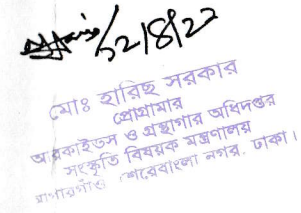 12/8/22
মোঃ হারিছ সরকার
প্রোগ্রামার
আরকাইভস ও গ্রন্থাগার অধিদপ্তর
সংস্কৃতি বিষয়ক মন্ত্রণালয়
আগারগাঁও শেরেবাংলা নগর, ঢাকা।